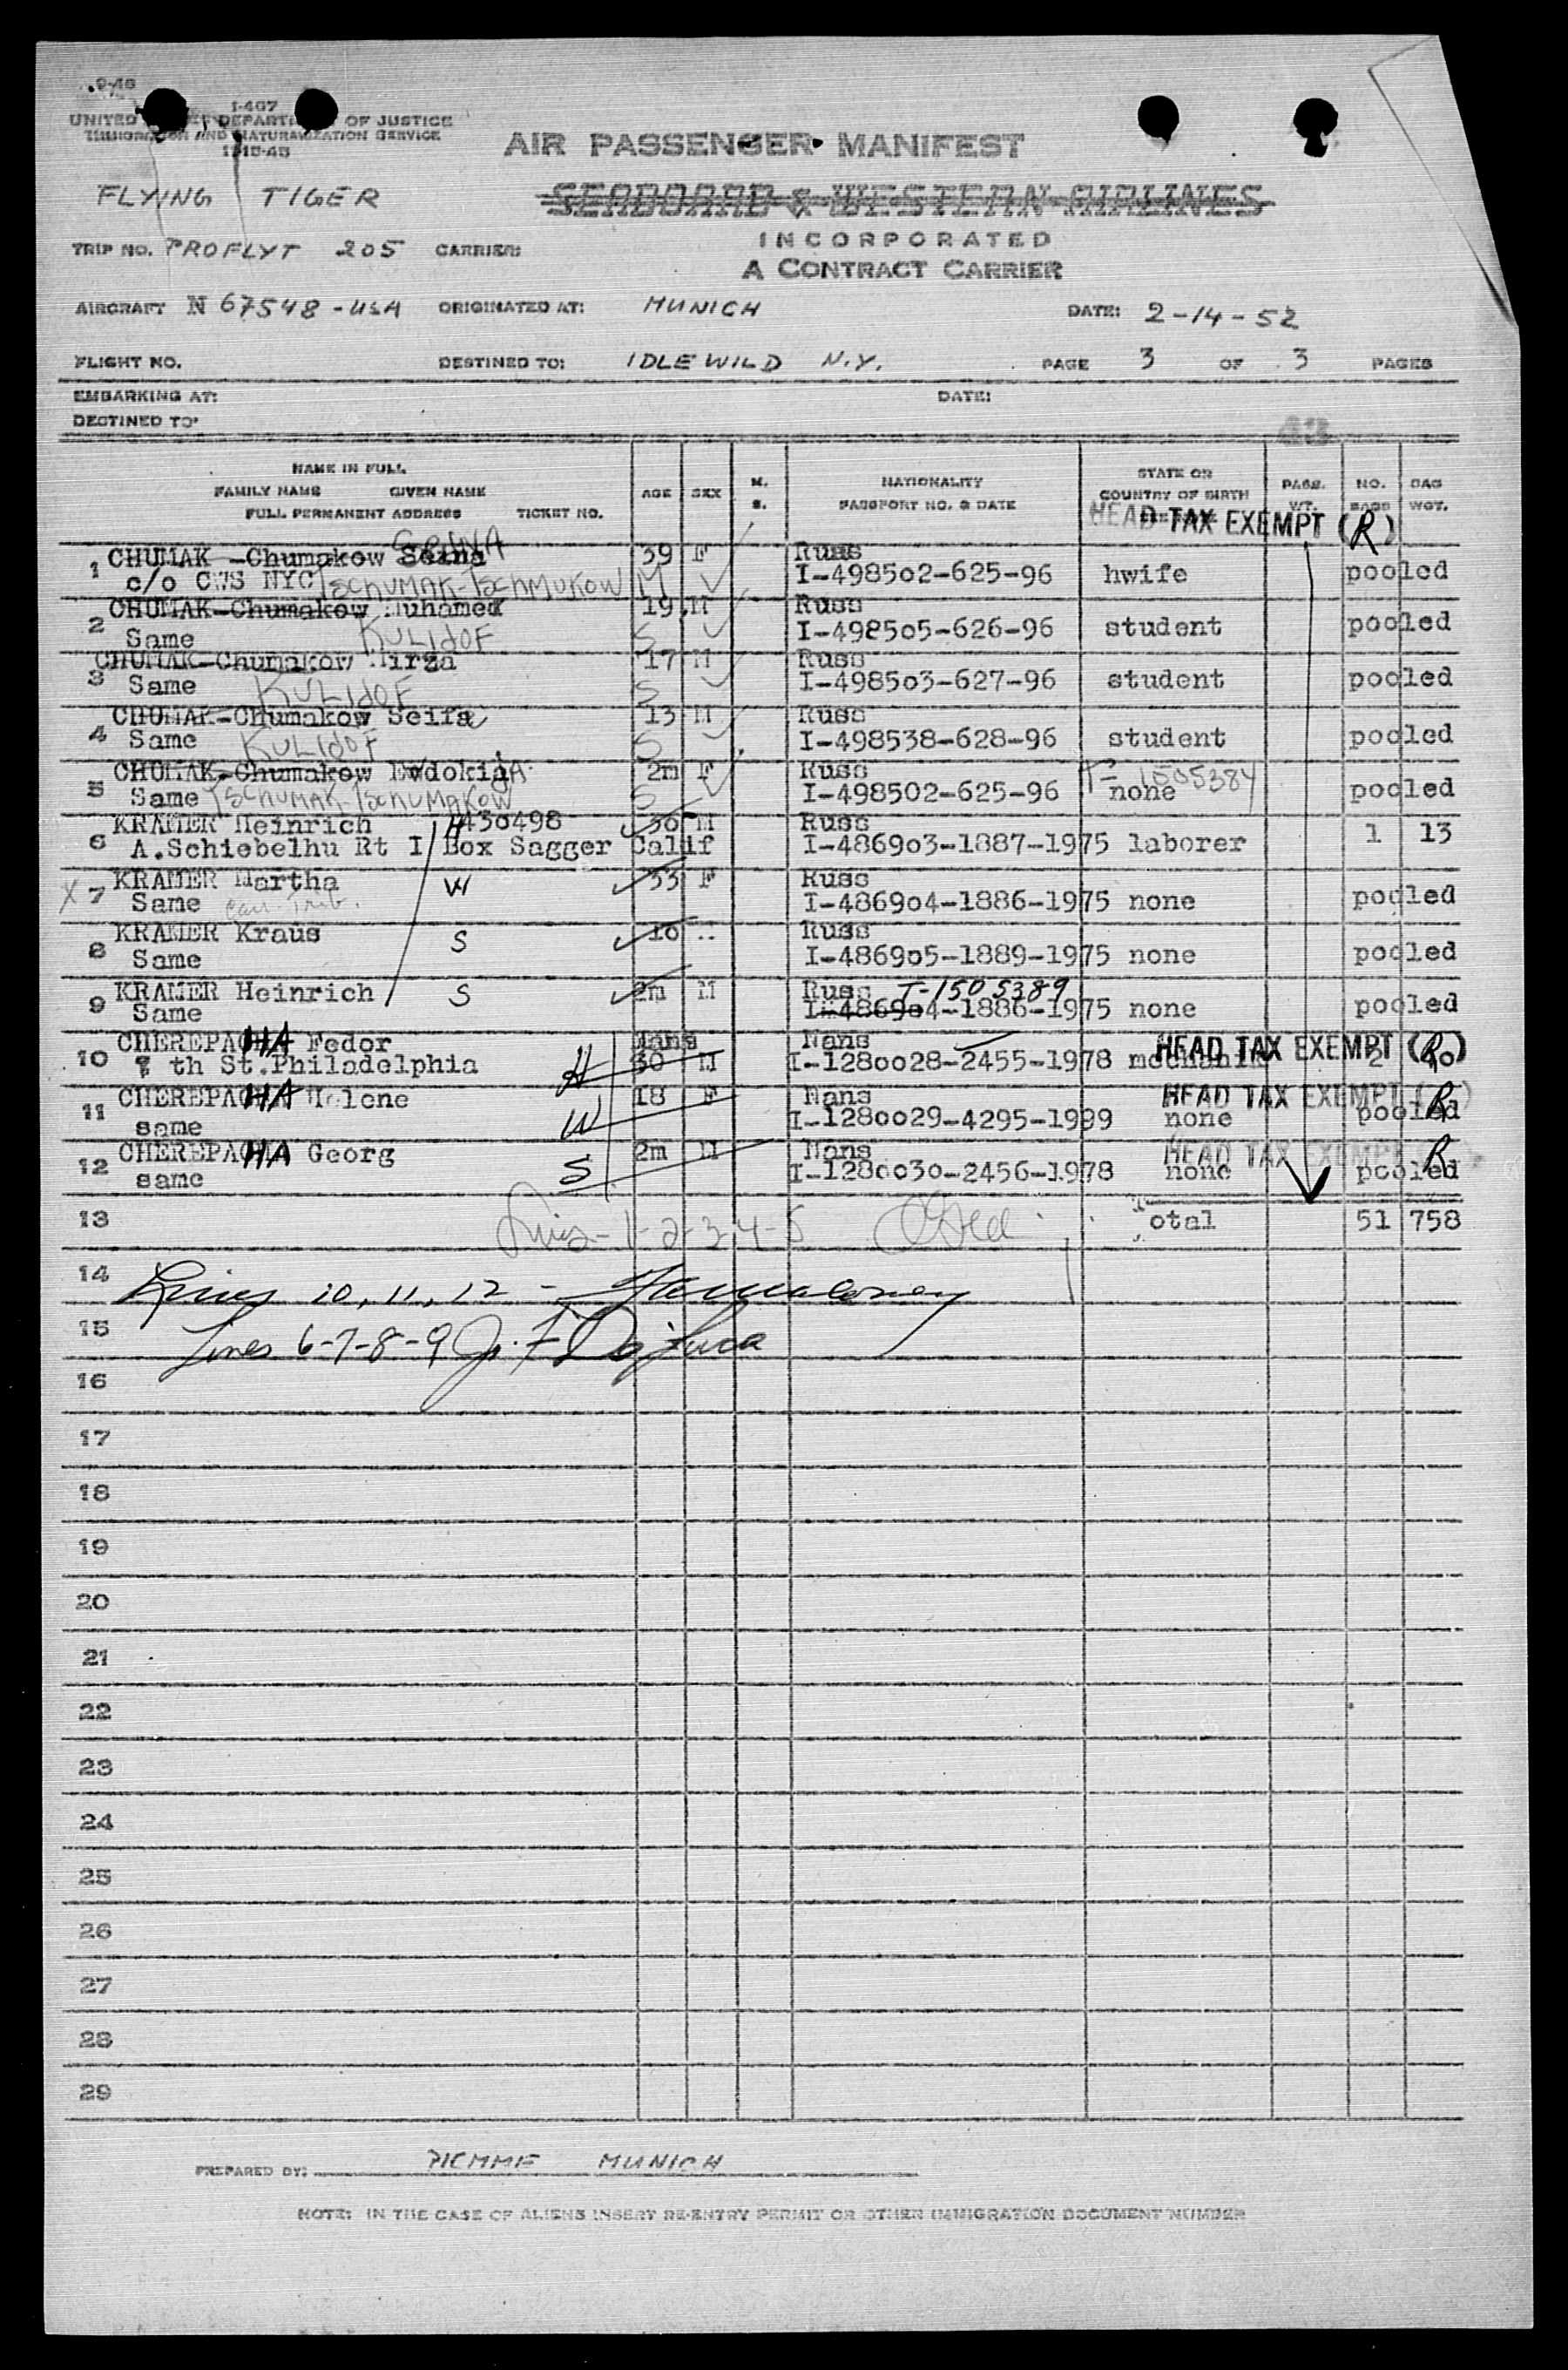 9-48
I-407
UNITED STATES DEPARTMENT OF JUSTICE
IMMIGRATION AND NATURALIZATION SERVICE
AIR PASSENGER MANIFEST
FLYING TIGER
SEABOARD & WESTERN AIRLINES
INCORPORATED
A CONTRACT CARRIER
TRIP NO. PROFLYT 205 CARRIER:
AIRCRAFT N 67548-USA ORIGINATED AT: MUNICH DATE: 2-14-52
FLIGHT NO. DESTINED TO: IDLEWILD N.Y. PAGE 3 OF 3 PAGES
EMBARKING AT: DATE:
DESTINED TO:
43
NAME IN FULL
FAMILY NAME GIVEN NAME
FULL PERMANENT ADDRESS TICKET NO.
AGE SEX M. S. NATIONALITY PASSPORT NO. & DATE STATE OR COUNTRY OF BIRTH PASS. WT. NO. BAGS BAG WGT.
HEAD TAX EXEMPT (R)
1 CHUMAK -Chumakow 39 F Russ
c/o CWS NYC TSCHUMAK-TSCHMUKOW M I-498502-625-96 hwife pooled
2 CHUMAK-Chumakow Muhamed 19 M Russ
Same KULIdOF S I-498505-626-96 student pooled
3 CHUMAK-Chumakow Mirza 17 M Russ
Same KULIdOF S I-498503-627-96 student pooled
4 CHUMAK-Chumakow Seifa 13 M Russ
Same KULIdOF S I-498538-628-96 student pooled
5 CHUMAK-Chumakow Ewdokija 2m F Russ T-1505384
Same TSCHUMAK-TSCHUMAKOW S I-498502-625-96 none pooled
6 KRAMER Heinrich H 430498 36 M Russ
A.Schiebelhu Rt I Box Sagger Calif I-486903-1887-1975 laborer 1 13
X 7 KRAMER Martha W 33 F Russ
Same I-486904-1886-1975 none pooled
8 KRAMER Kraus S 10 M Russ
Same I-486905-1889-1975 none pooled
9 KRAMER Heinrich S 2m M Russ T-1505389
Same I-486904-1886-1975 none pooled
10 CHEREPACHA Fedor Nans HEAD TAX EXEMPT (R)
th St.Philadelphia H 30 M I-1280028-2455-1978 mechanic 2
11 CHEREPACHA Helene 18 F Nans HEAD TAX EXEMPT (R)
same W I-1280029-4295-1999 none pooled
12 CHEREPACHA Georg 2m M Nans HEAD TAX EXEMPT R
same S I-1280030-2456-1978 none pooled
13 Lines-1-2-3-4-5 Total 51 758
14 Lines 10, 11, 12 -
15 Lines 6-7-8-9
16
17
18
19
20
21
22
23
24
25
26
27
28
29
PREPARED BY: PICMME MUNICH
NOTE: IN THE CASE OF ALIENS INSERT RE-ENTRY PERMIT OR OTHER IMMIGRATION DOCUMENT NUMBER